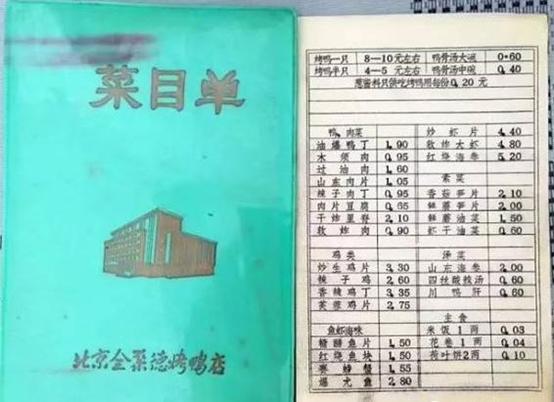 菜目单
北京全聚德烤鸭店
烤鸭一只 8—10元左右 鸭骨汤大碗 0.60
烤鸭半只 4—5元左右 鸭骨汤中碗 0.40
葱酱料只供吃烤鸭用每份0.20元
鸭、肉菜
油爆鸭丁 1.90
木须肉 0.95
过油肉 1.60
山东肉片 1.05
辣子肉丁 0.95
肉片豆腐 0.65
干炸里脊 2.10
软炸肉 0.90
鸡类
炒生鸡片 3.30
辣子鸡 2.60
香辣鸡丁 3.35
芙蓉鸡片 2.75
鱼虾海味
糟溜鱼片 1.50
红烧鱼块 1.50
赛螃蟹 1.55
爆尤鱼 2.80
炒虾片 4.40
软炸大虾 4.80
红烧海参 5.20
素菜
香菇笋片 2.10
鲜蘑笋片 2.00
鲜蘑油菜 1.50
虾干油菜 0.60
汤菜
山东海参 2.00
四丝酸辣汤 0.60
川鸭肝 0.60
主食
米饭1两 0.03
花卷1两 0.04
荷叶饼2两 0.10